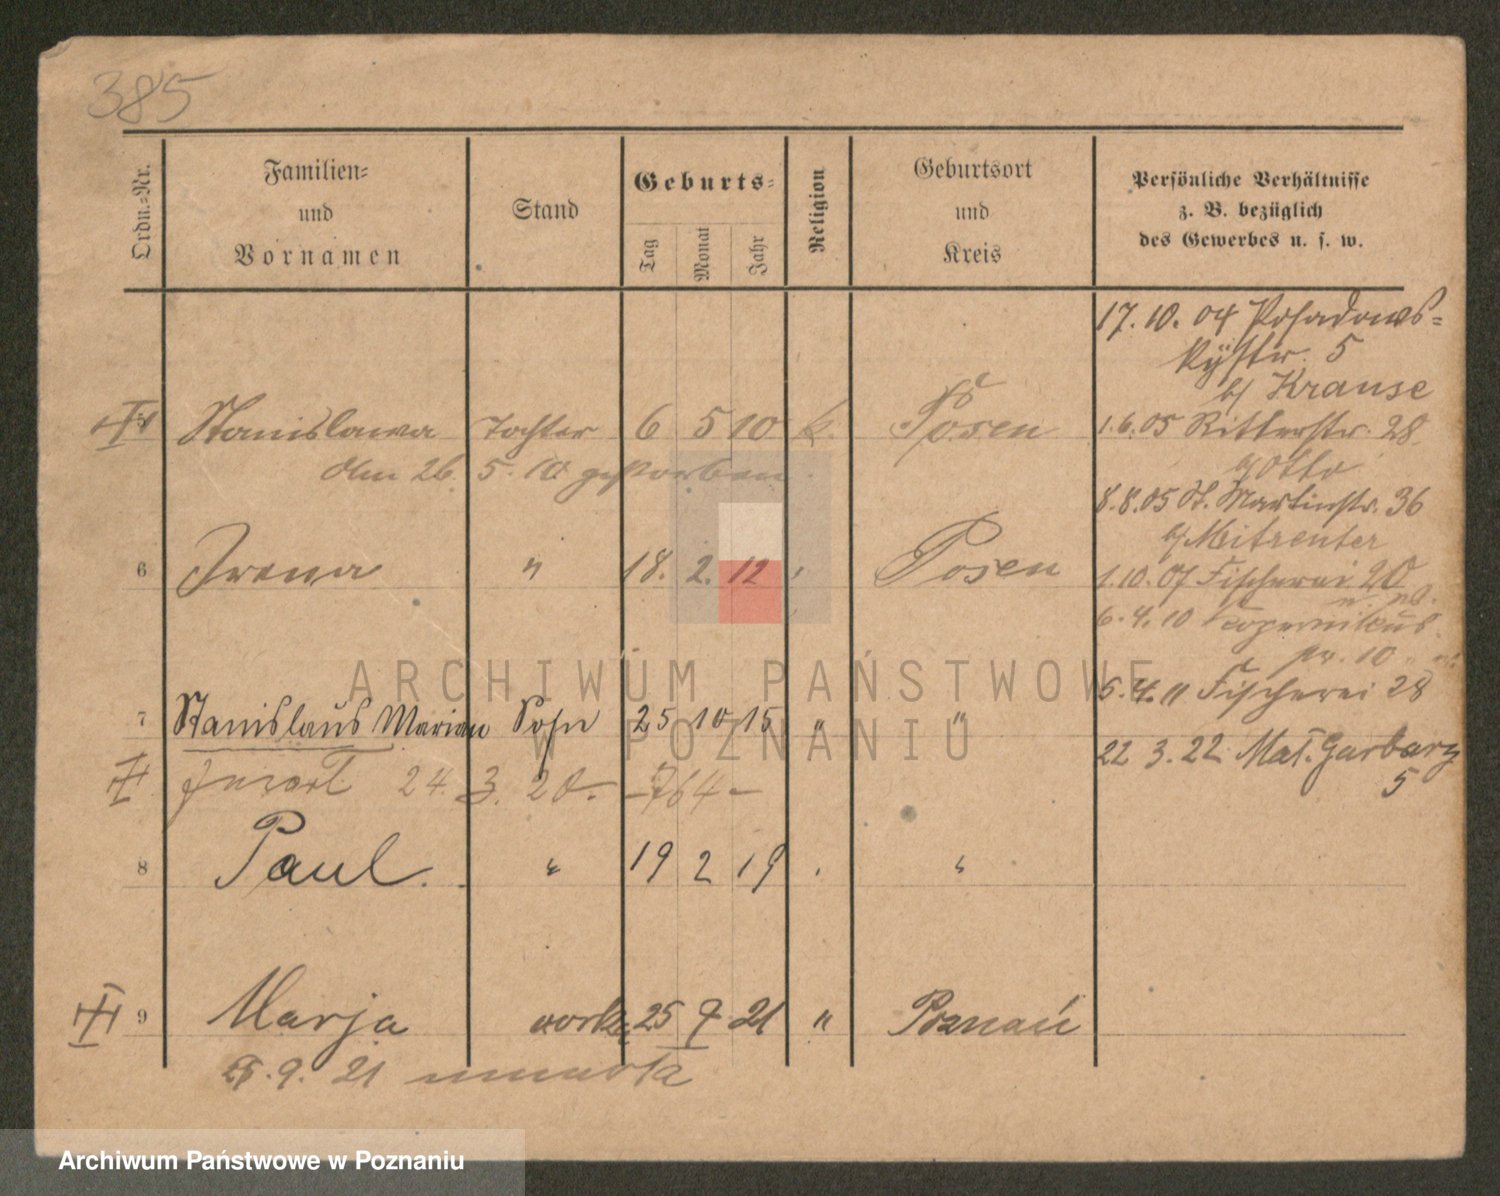 385
Ordn.-Nr.
Familien-
und
Vornamen
Stand
Geburts-
Tag
Monat
Jahr
Religion
Geburtsort
und
Kreis
Persönliche Verhältnisse
z. B. bezüglich
des Gewerbes u. s. w.
17. 10. 04 Posadows-
kystr. 5
b/ Krause
Stanislawa Tochter 6 5 10 k. Posen
1.6.05 Ritterstr. 28
am 26. 5. 10 gestorben
b/ Otto
8.8.05 St. Martinstr. 36
b/ Mitrenter
6 Irena " 18. 2. 12 Posen
1.10.07 Fischerei 20
6.4.10 Kopernikus
str. 10
5.4.11 Fischerei 28
7 Stanislaus Marian Sohn 25 10 15 " "
22 3. 22 Mał. Garbary
5
24. 3. 20. -764-
8 Paul. " 19 2 19 "
9 Marja córka 25 9 21 " Poznań
25. 9. 21 umarła
ARCHIWUM PAŃSTWOWE
W POZNANIU
Archiwum Państwowe w Poznaniu